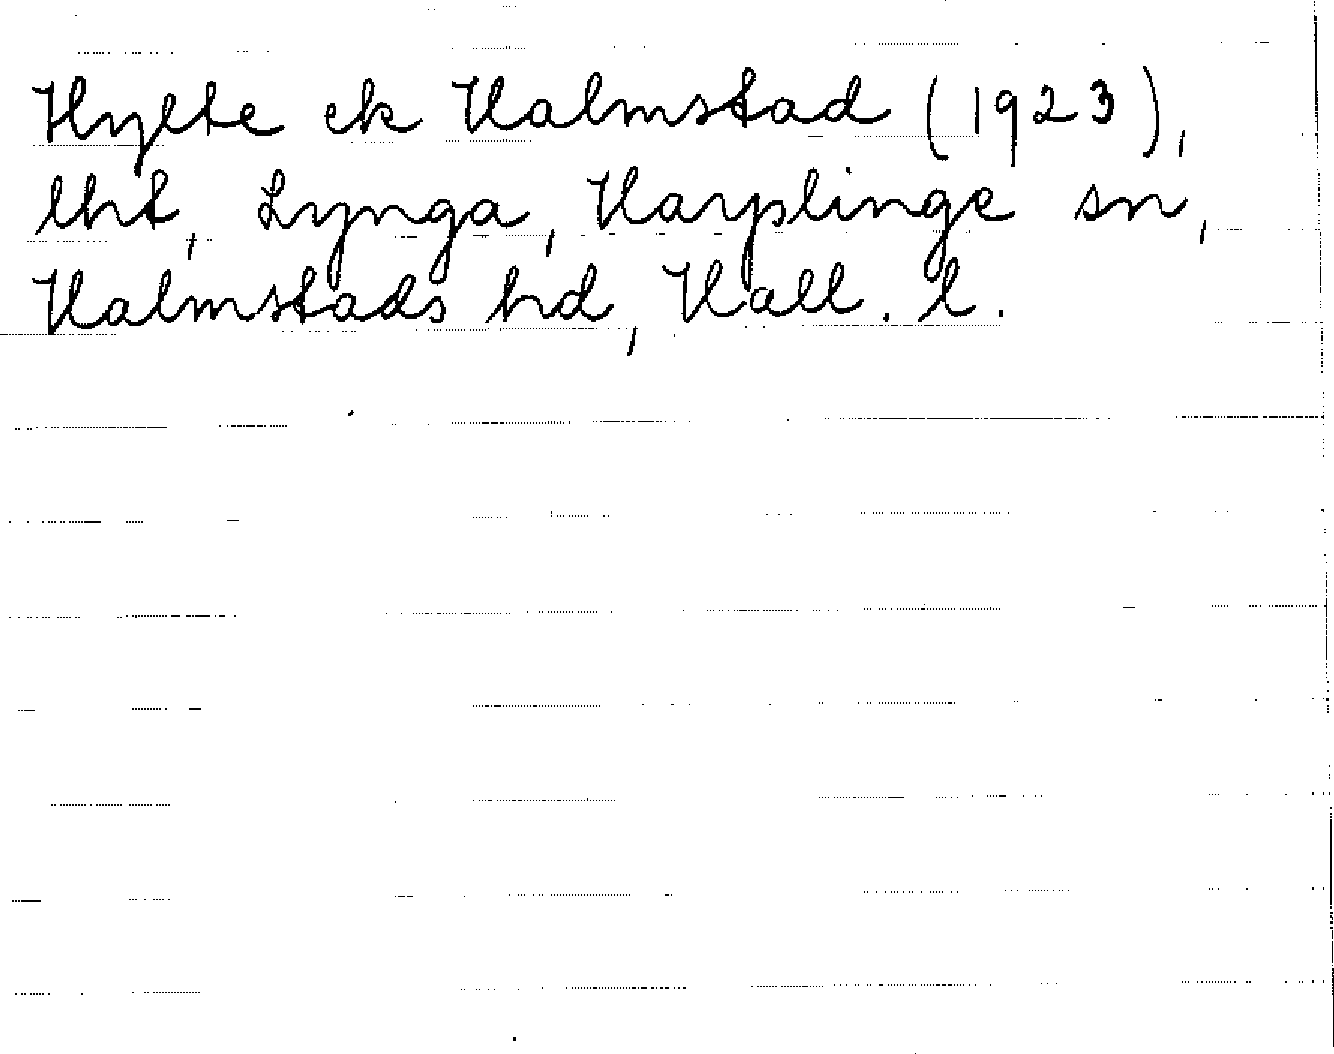 Hylte ek Halmstad (1923),
lht, Lynga, Harplinge sn,
Halmstads hd, Hall. l.